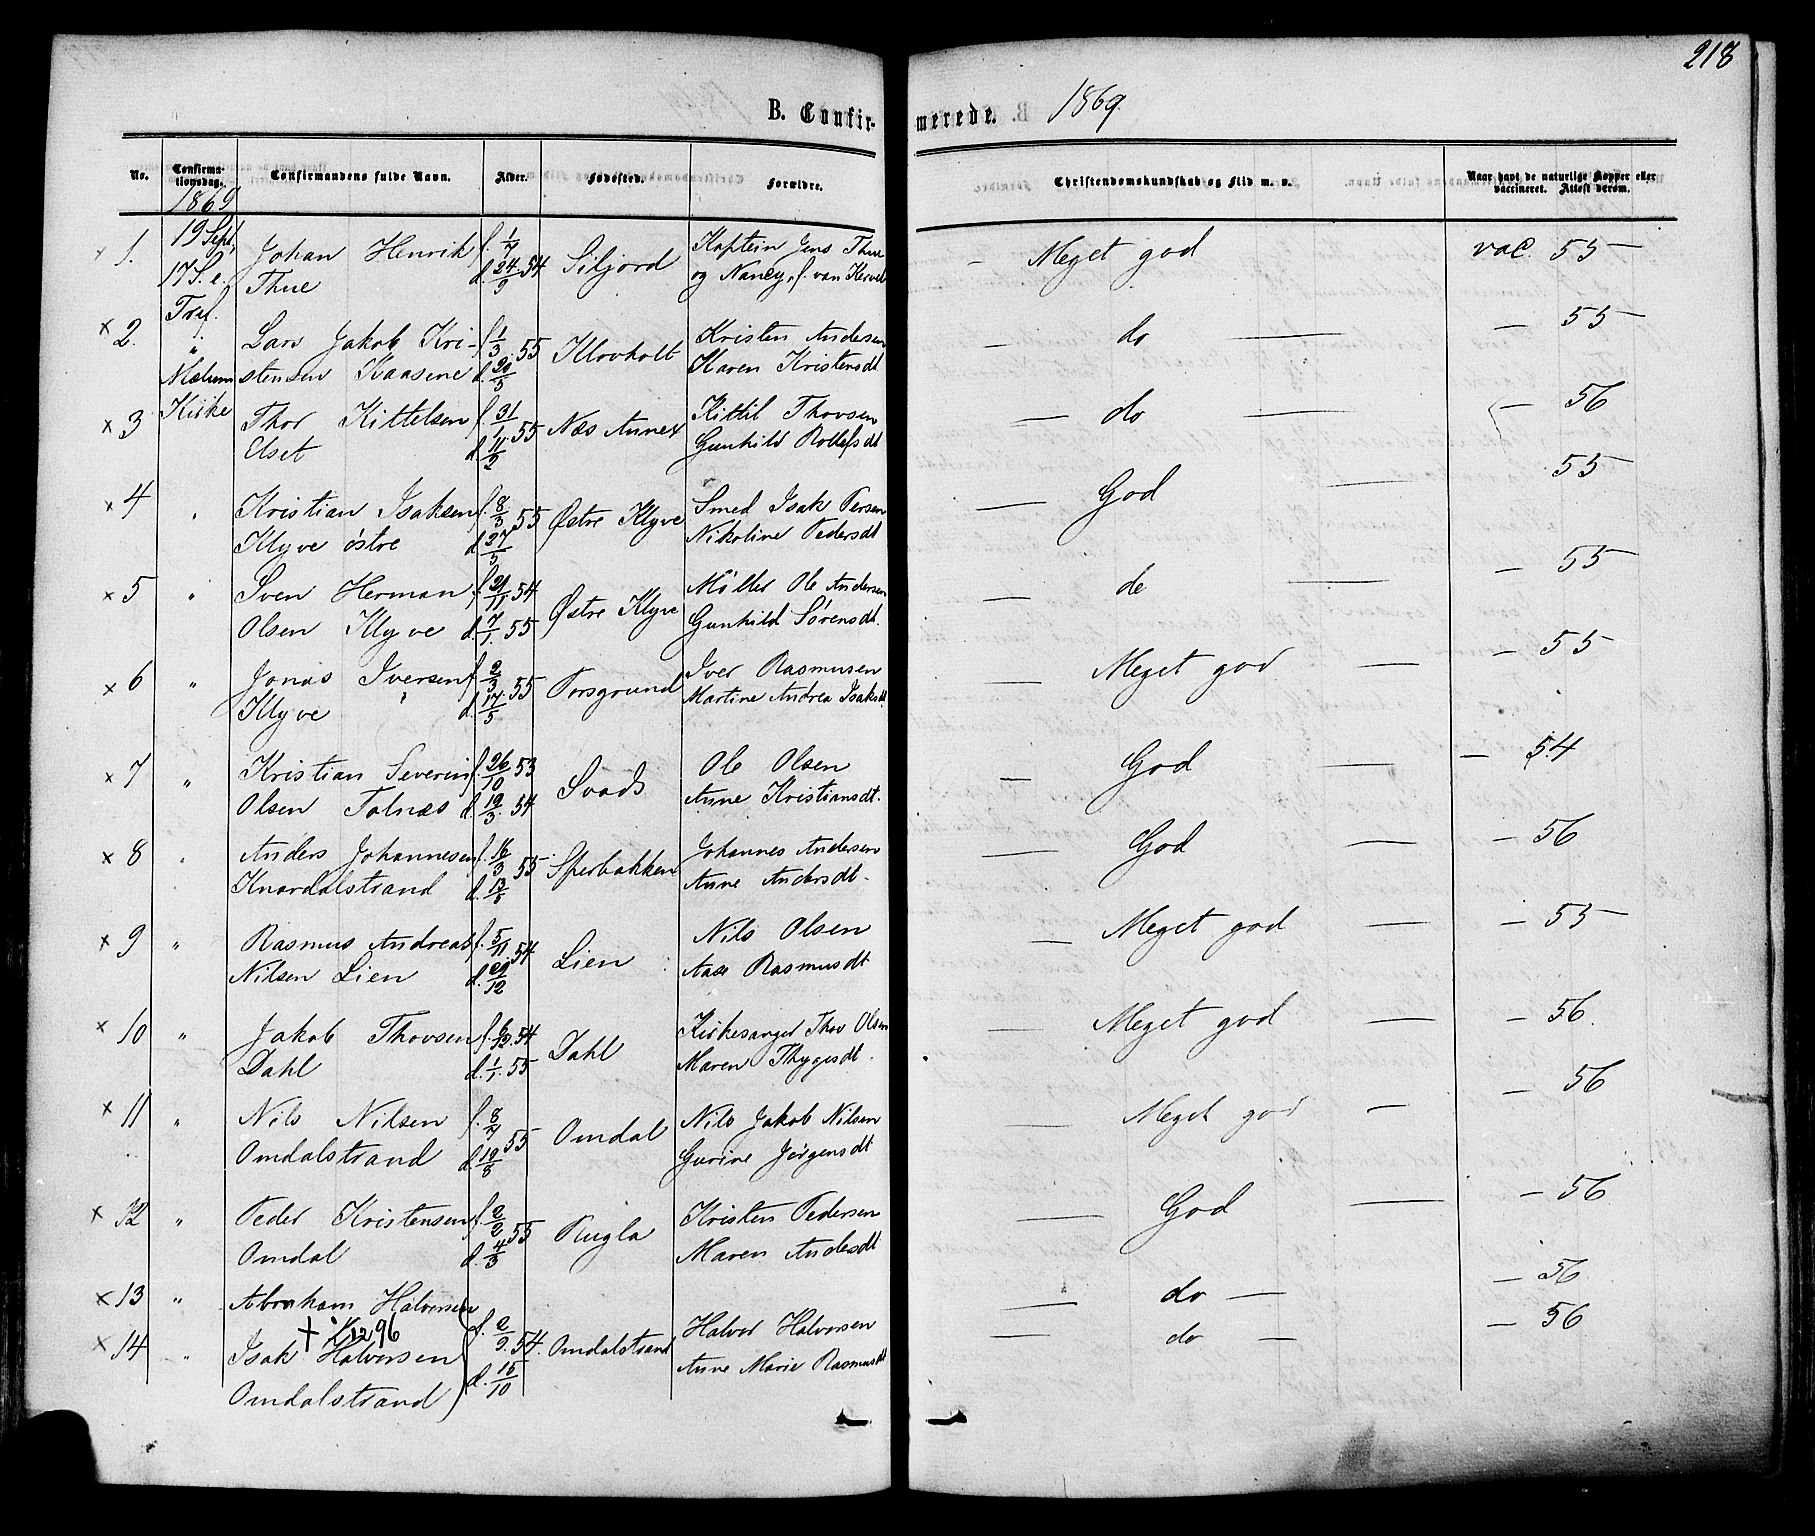 218
B. Confirmerede. 1869.
No. Confirmationsdag. Confirmandens fulde Navn. Alder. Fødested. Forældre. Christendomskundskab og Flid m. v. Naar havt de naturlige Kopper eller vaccineret. Attest derom.
1869
1. 19 Sept, Johan Henrik f. 1/7 Siljord Kaptein Jens Thue — Meget god vac. 55
17 S. e. Thue d. 24/9 54 og Nancy, f. van Kervel
Tref.
2. " Lars Jakob Kri- f. 1/3 55 Klovholt Kristen Andersen — do — — 55
Mælum stensen Kaasene d. 20/5 Karen Kristensdt
3 Kirke Thor Kittelsen f. 31/1 55 Næs Annex Kittil Thovsen — do — — 56
Elset d. 11/2 Gunhild Rollefsdt
4 " Kristian Isaksen f. 8/3 55 Østre Klyve Smed Isak Persen — God — 55
Klyve østre d. 27/5 Nikoline Pedersdt
5 " Sven Herman f. 21/11 54 Østre Klyve Møller Ole Andersen — do — — 55
Olsen Klyve d. 7/1. 55 Gunhild Sørensdt.
6 " Jonas Iversen f. 2/3 55 Porsgrund Iver Rasmusen — Meget god — — 55
Klyve d. 17/5 Martine Andrea Isaksdt
7 " Kristian Severin f. 26/10 53 Svads Ole Olsen — God — — 54
Olsen Tolnæs d. 19/3. 54 Anne Kristiansdt.
8 " Anders Johannesen f. 16/3 55 Sperbakken Johannes Andersen — God — — 56
Knardalstrand d. 13/5 Anne Andersdt.
9 " Rasmus Andreas f. 5/11 54 Lien Nils Olsen — Meget god — — 55
Nilsen Lien d. 29/12 Aase Rasmusdt
10 " Jakob Thovsen f. 6/12. 54 Dahl Kirkesanger Thov Olsen — Meget god — — 56.
Dahl d. 1/1. 55 Maren Thygesdt.
11 " Nils Nilsen f. 8/4 55 Omdal Nils Jakob Nilsen — Meget god — — 56
Omdalstrand d. 19/5 Gurine Jørgensdt
12 " Peder Kristensen f. 2/2 55 Rugla Kristen Pedersen — God — — 56
Omdal d. 4/3 Maren Andersdt
13 " Abraham Halvorsen — do — — 56
+ 12 96
14 " Isak Halvorsen f. 2/9. 54. Omdalstrand Halvor Halvorsen — do — — 56
Omdalstrand d. 15/10 Anne Marie Rasmusdt